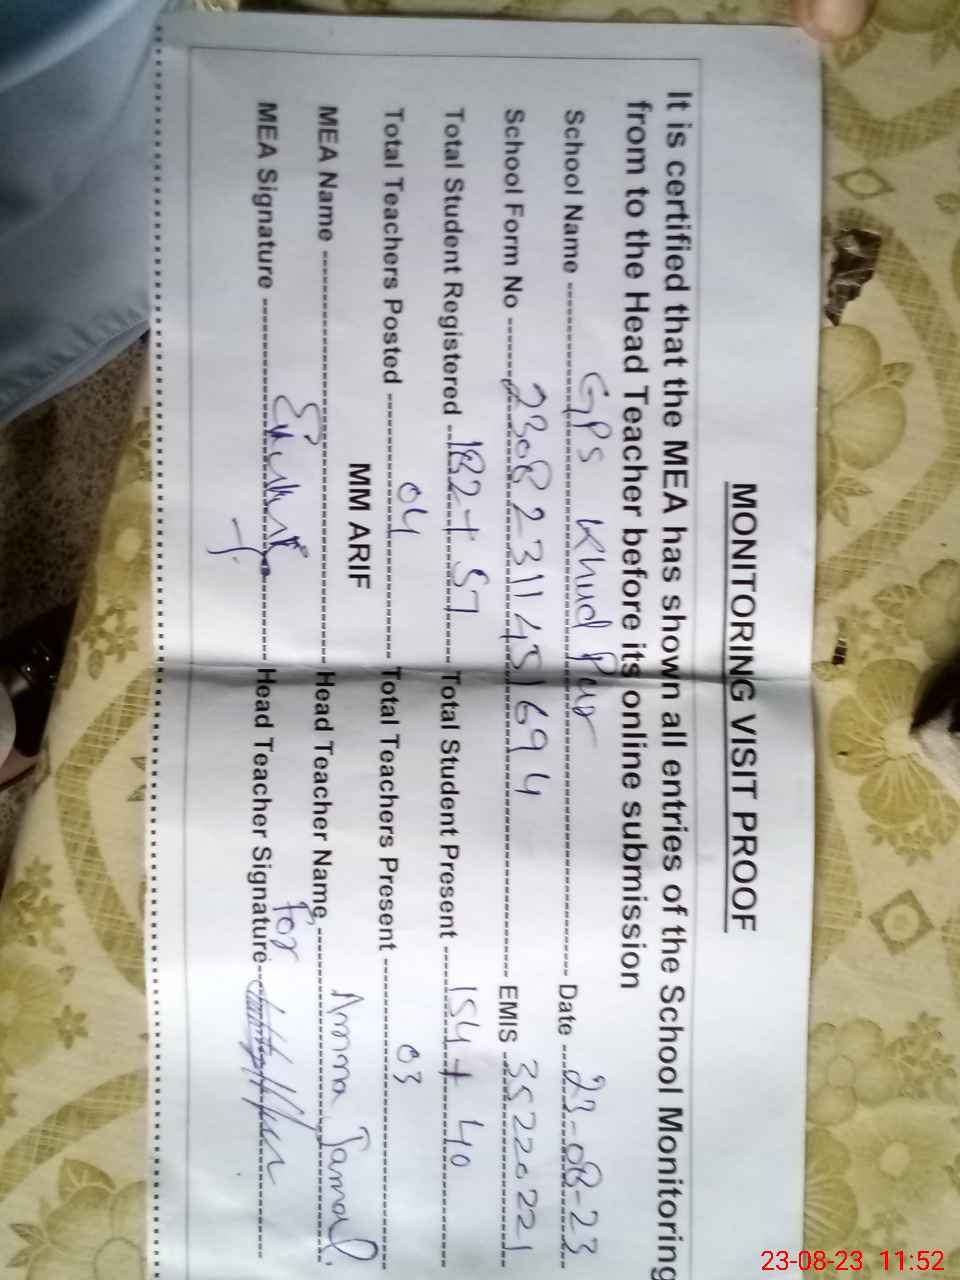 MONITORING VISIT PROOF
It is certified that the MEA has shown all entries of the School Monitoring
from to the Head Teacher before its online submission
School Name GPS Khud Pur Date 23-08-23
School Form No 23082311451694 EMIS 35220221
Total Student Registered 182+57 Total Student Present 154+40
Total Teachers Posted 04 Total Teachers Present 03
MM ARIF
MEA Name Head Teacher Name Amna Jamal
MEA Signature Head Teacher Signature For
23-08-23 11:52